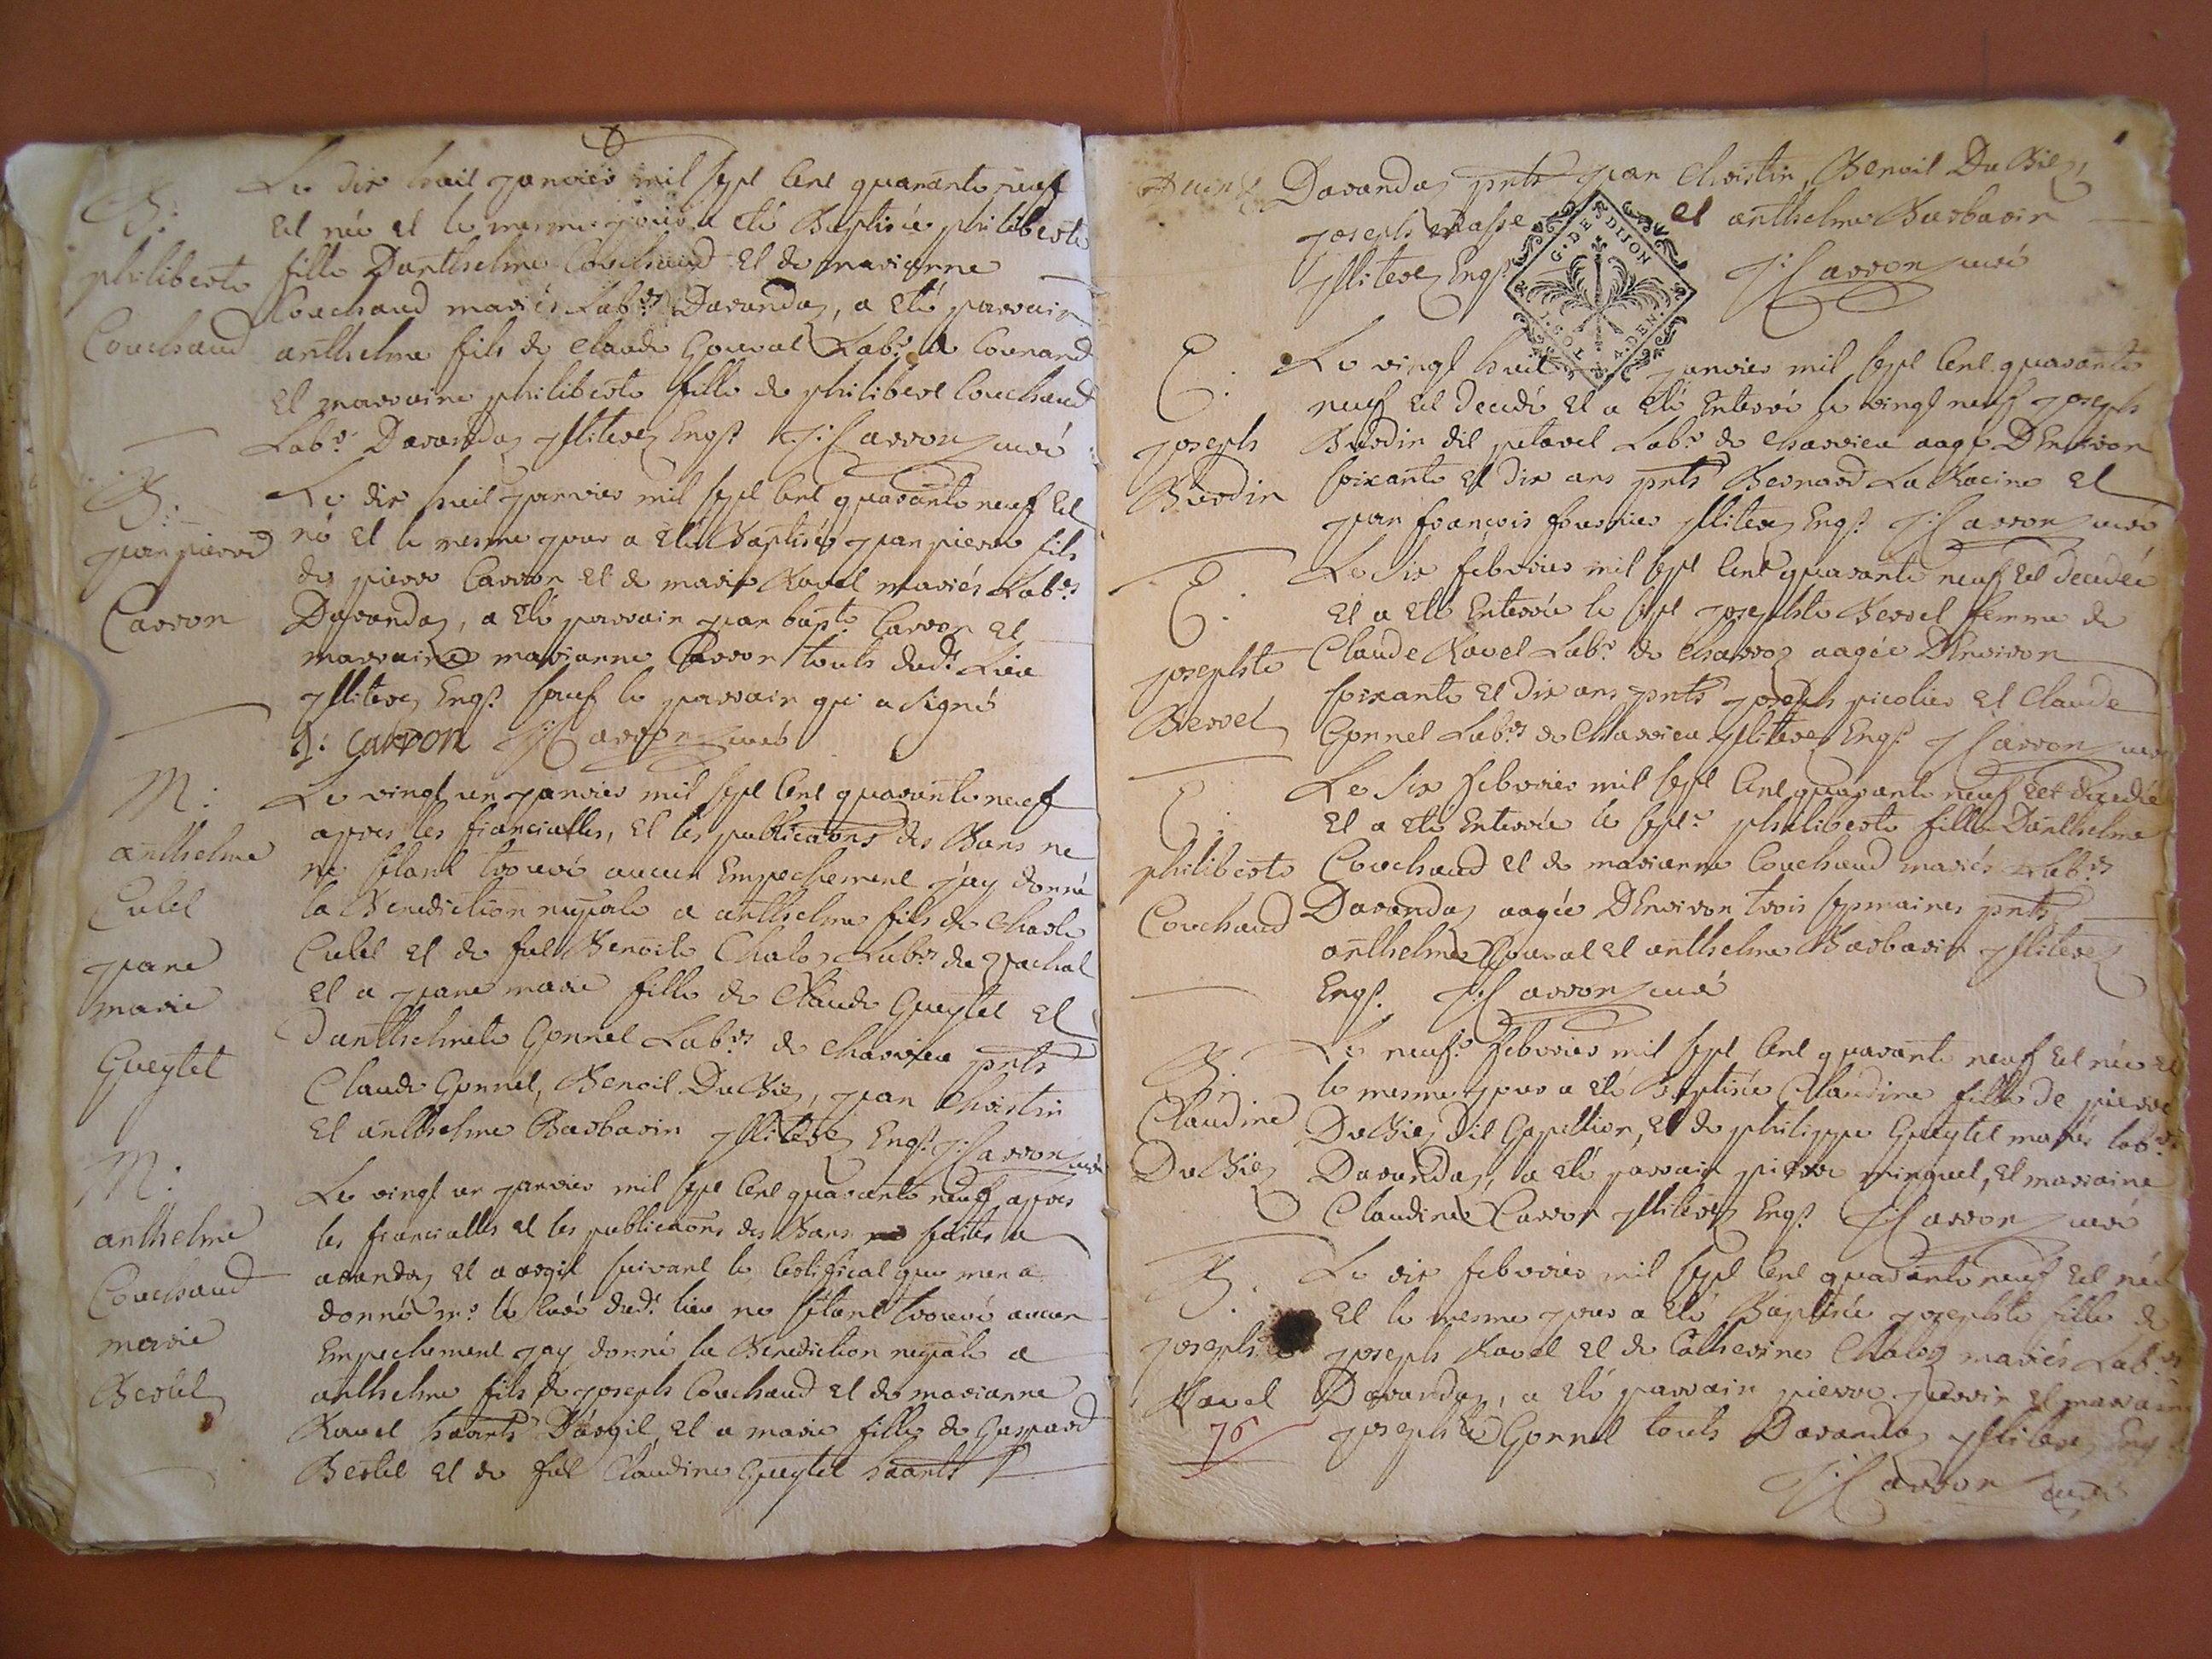 B:
philiberte
Couchaud
Le dix huit janvier mil sept cent quarante neuf
est née et le mesme jour a été Baptisée philiberte
fille Danthelme Couchaud et de marianne
Couchaud mariés Lab:rs Davandaz, a été parrain
anthelme fils de Claude Gouval Lab:r
et marraine philiberte fille de philibert Couchaud
Lab:r Davandaz Jllitérez Enqs J: Carron curé
B:
jean pierre
Carron
Le dix huit janvier mil sept cent quarante neuf est
né et le mesme jour a été Baptisée jean pierre fils
de pierre Carron et de marie Ravel mariés Lab:rs
Davandaz, a été parrain jean bapt:e Carron et
marraine marianne Carron touts dud:t Lieu
Jllitérez Enqs sauf le parrain qui a signé
J: Carron J: Carron curé
M:
anthelme
Cubel
jeane
marie
Gueytet
Le vingt un janvier mil sept cent quarante neuf
apres les fiancialles, et les publicaons des Bans ne
ne sétant trouvé aucun Empechement j'ay donné
la Benediction nupale a anthelme fils de Charle
Cubel et de fut Benoite Chaloz Lab:rs
et a jeane marie fille de Claude Gueytet et
Danthelmete Gonnel Lab:rs de Charvieu pnts
Claude Gonnel, Benoit Du Biez, jean Christin
et anthelme Barbarin Jllitérez Enqs J: Carron curé
M:
anthelme
Couchaud
marie
Bertel
Le vingt un janvier mil sept cent quarante neuf apres
les fiancialles et les publicaons des Bans faites a
avandaz et a argit suivant le Certificat que men a
donné m:r le Curé dud:t lieu ne sétant trouvé aucun
Empechement jay donné la Benediction nupale a
anthelme fils de joseph Couchaud et de marianne
Ravel haants Dargit, et a marie fille de Gaspard
Bertel et de fut Claudine Gueytet haants
Davandaz pnts jean Christin, Benoit Du Biez,
joseph masse et anthelme Barbarin
Jllitérez Enqs J: Carron curé
G. DE DIJON
E:
joseph
Burdin
Le vingt huit janvier mil sept cent quarante
neuf est decedé et a été Enterré le vingt neuf joseph
Burdin dit petavel Lab:r de Charvieu aagé DEnviron
soixante et dix ans pnts Bernard La Racine et
jean françois fournier Jllitérez Enqs J: Carron curé
E:
josephte
Bervel
Le six febvrier mil sept cent quarante neuf est decedée
et a été Enterrée le sept josephte Bervel femme de
Claude Ravel Lab:r de Charvoz aagée DEnviron
soixante et dix ans pnts joseph picolier et Claude
Gonnel Lab:rs de Charvieu Jllitérez Enqs J: Carron curé
E:
philiberte
Couchaud
Le six febvrier mil sept cent quarante neuf est decedée
et a été Enterrée le sept:e philiberte fille Danthelme
Couchaud et de marianne Couchaud mariés Lab:rs
Davandaz aagée DEnviron trois sepmaines pnts
anthelme Gouval et anthelme Barbarin Jllitérez
Enqs. J: Carron curé
B:
Claudine
Du Biez
Le neuf:e febvrier mil sept cent quarante neuf est née et
le mesme jour a été Baptisée Claudine fille de pierre
Du Biez dit Gapillion, et de philippe Gueytet mariés lab:rs
Davandaz, a été parrain pierre minguet, et marraine
Claudine Carron Jllitérez Enqs. J: Carron curé
B:
josephte
Ravel
76
Le dix febvrier mil sept cent quarante neuf est née
et le mesme jour a été Baptisée josephte fille de
joseph Ravel et de Catherine Chaloz mariés Lab:rs
Davandaz, a été parrain pierre et marraine
josephte Gonnel touts Davandaz Jllitérez Enqs
J: Carron curé